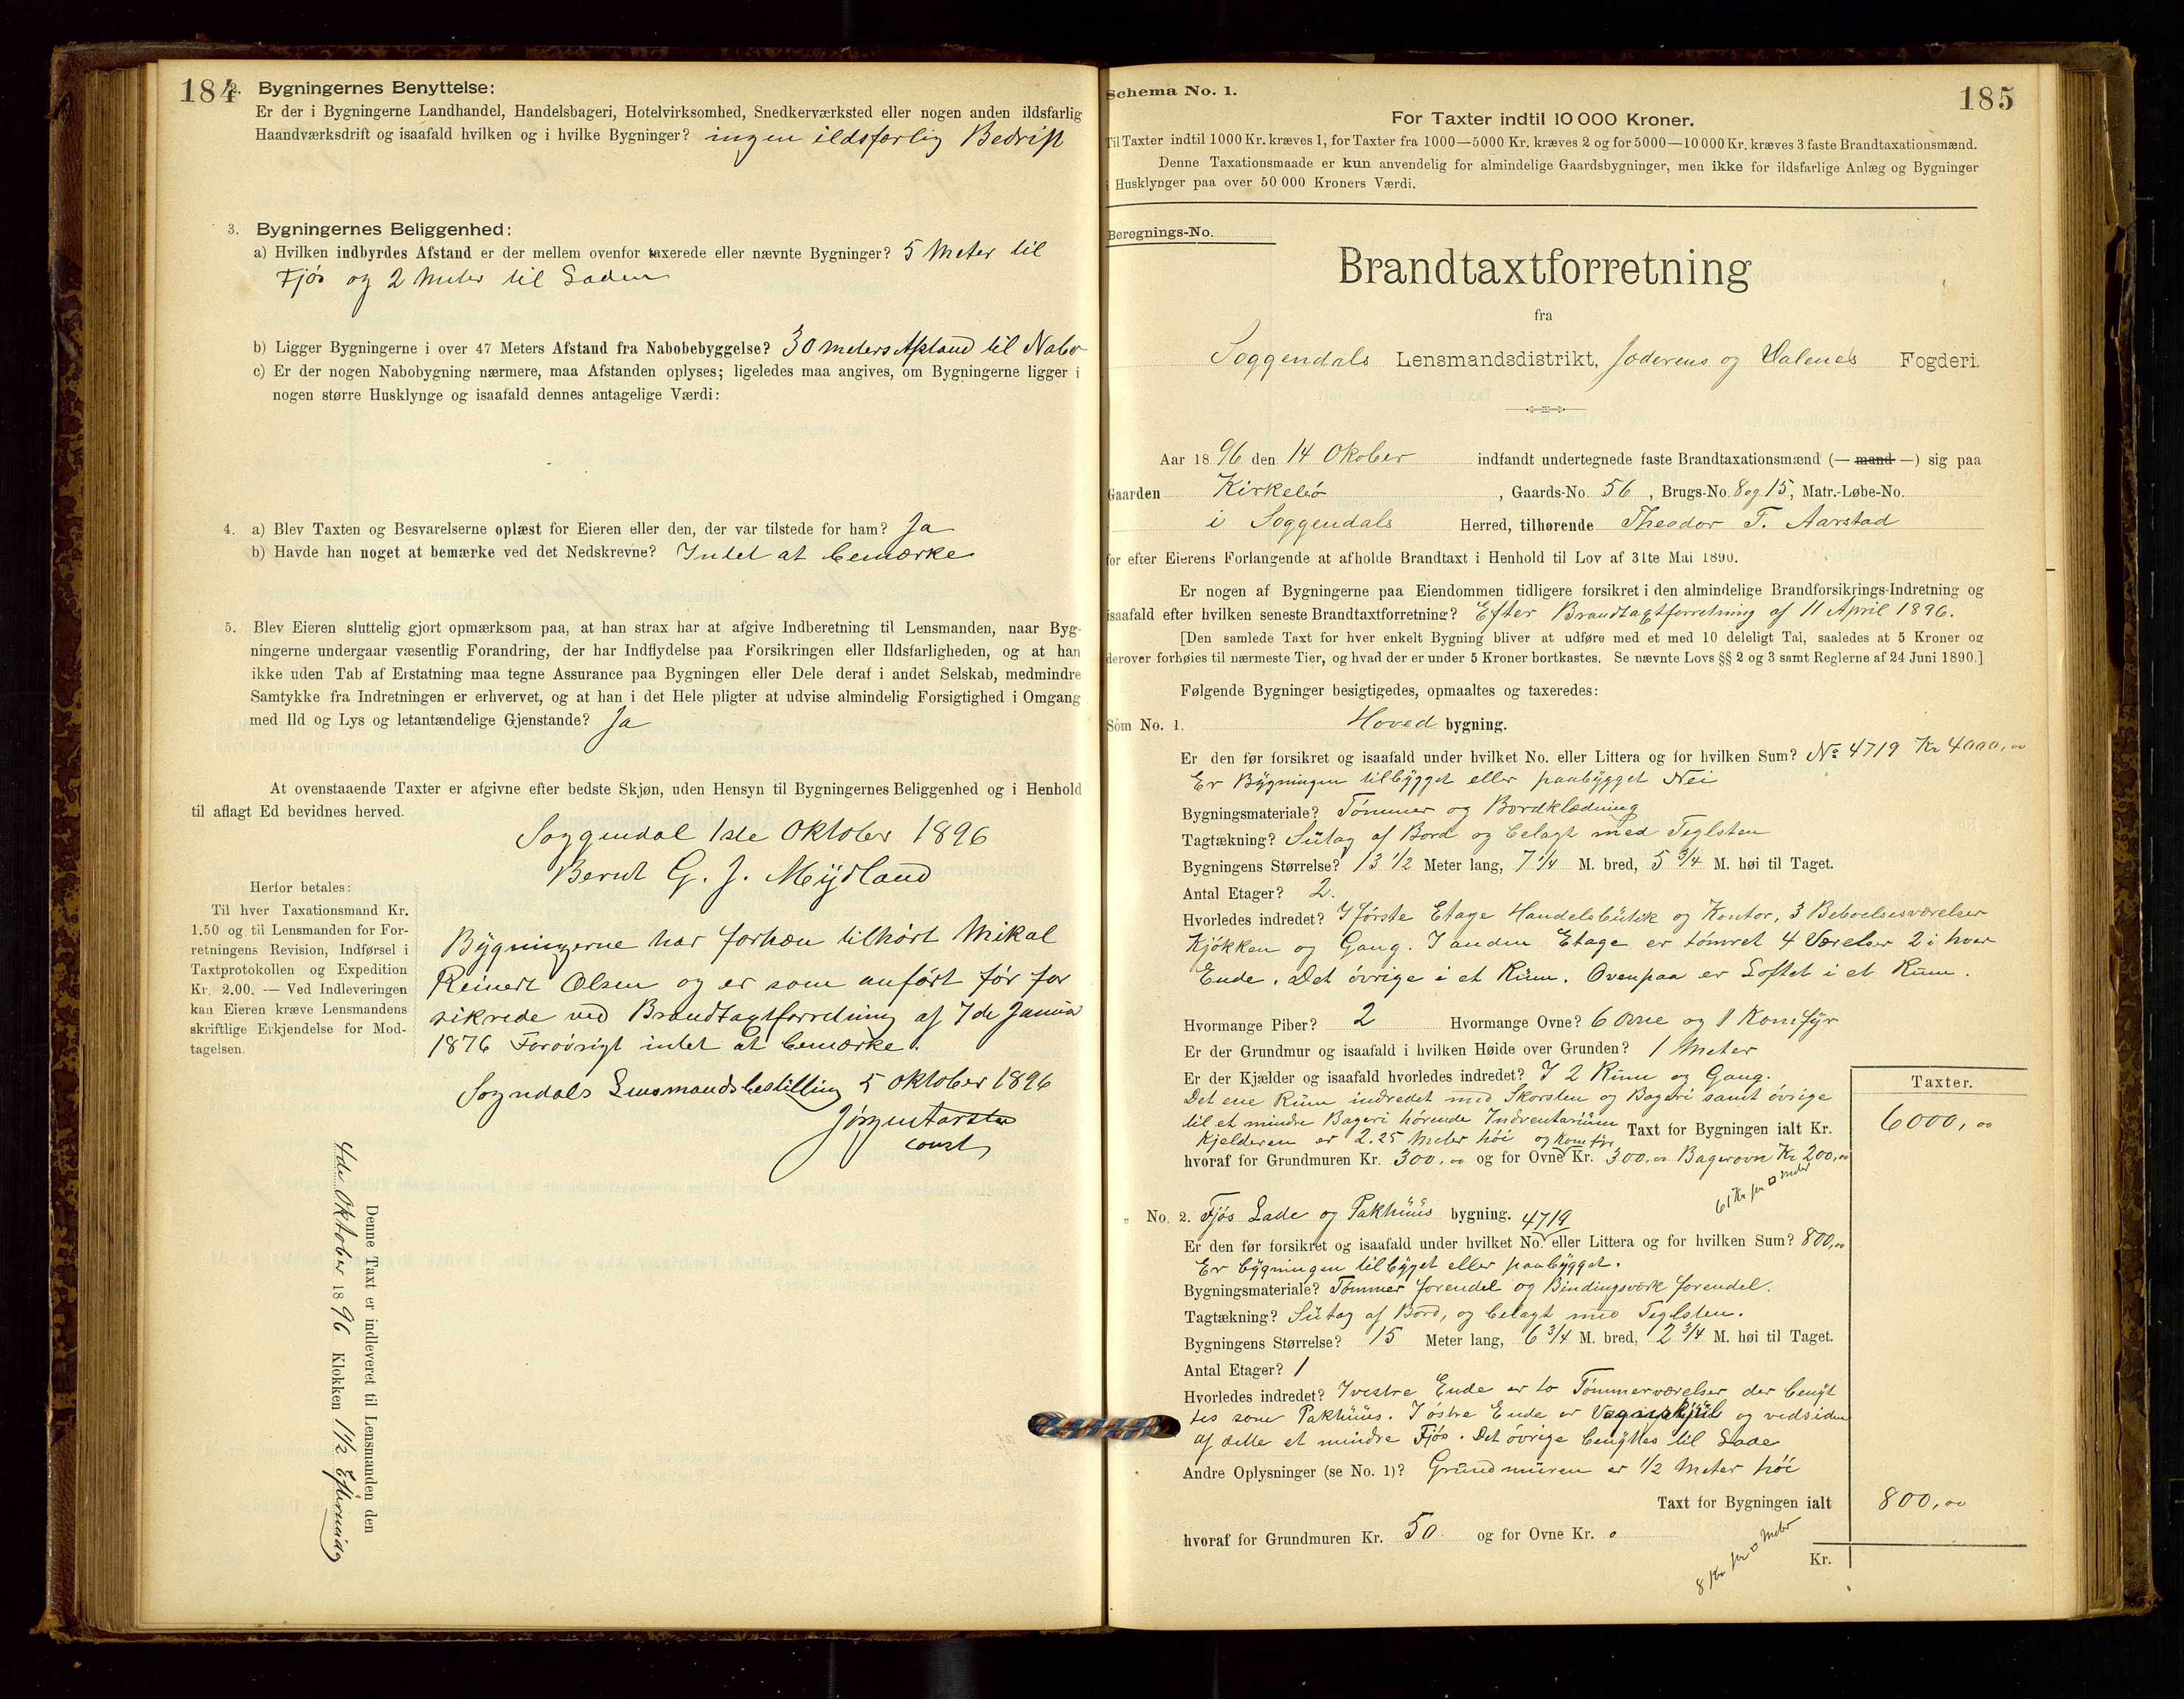 184
2. Bygningernes Benyttelse:
Er der i Bygningerne Landhandel, Handelsbageri, Hotelvirksomhed, Snedkerværksted eller nogen anden ildsfarlig
Haandværksdrift og isaafald hvilken og i hvilke Bygninger? ingen ildsfarlig Bedrift
3. Bygningernes Beliggenhed:
a) Hvilken indbyrdes Afstand er der mellem ovenfor taxerede eller nævnte Bygninger? 5 Meter til
Fjøs og 2 Meter til Laden
b) Ligger Bygningerne i over 47 Meters Afstand fra Nabobebyggelse? 30 meters Afstand til Nabo
c) Er der nogen Nabobygning nærmere, maa Afstanden oplyses; ligeledes maa angives, om Bygningerne ligger i
nogen større Husklynge og isaafald dennes antagelige Værdi:
4. a) Blev Taxten og Besvarelserne oplæst for Eieren eller den, der var tilstede for ham? Ja
b) Havde han noget at bemærke ved det Nedskrevne? Intet at bemærke
5. Blev Eieren sluttelig gjort opmærksom paa, at han strax har at afgive Indberetning til Lensmanden, naar Byg-
ningerne undergaar væsentlig Forandring, der har Indflydelse paa Forsikringen eller Ildsfarligheden, og at han
ikke uden Tab af Erstatning maa tegne Assurance paa Bygningen eller Dele deraf i andet Selskab, medmindre
Samtykke fra Indretningen er erhvervet, og at han i det Hele pligter at udvise almindelig Forsigtighed i Omgang
med Ild og Lys og letantændelige Gjenstande? Ja
At ovenstaaende Taxter er afgivne efter bedste Skjøn, uden Hensyn til Bygningernes Beliggenhed og i Henhold
til aflagt Ed bevidnes herved.
Soggendal 1ste Oktober 1896
Bernt G. J. Mydland
Herfor betales:
Til hver Taxationsmand Kr.
1.50 og til Lensmanden for For-
retningens Revision, Indførsel i
Taxtprotokollen og Expedition
Kr. 2.00. — Ved Indleveringen
kan Eieren kræve Lensmandens
skriftlige Erkjendelse for Mod-
tagelsen.
Bygningerne har forhen tilhørt Mikal
Reinert Olsen og er som anført før for
sikrede ved Brandtaxtforretning af 7de Januar
1876 Forøvrigt intet at bemærke.
Sogndals Lensmandsbestilling 5 Oktober 1896
Jørgen Aarstad
const
Denne Taxt er indleveret til Lensmanden den
4de Oktober 1896 Klokken 1 1/2 Eftermidg
185
Schema No. 1.
For Taxter indtil 10 000 Kroner.
Til Taxter indtil 1000 Kr. kræves 1, for Taxter fra 1000—5000 Kr. kræves 2 og for 5000—10 000 Kr. kræves 3 faste Brandtaxationsmænd.
Denne Taxationsmaade er kun anvendelig for almindelige Gaardsbygninger, men ikke for ildsfarlige Anlæg og Bygninger
i Husklynger paa over 50 000 Kroners Værdi.
Beregnings-No.
Brandtaxtforretning
fra
Soggendals Lensmandsdistrikt, Jæderens og Dalenes Fogderi.
Aar 1896 den 14 Okober indfandt undertegnede faste Brandtaxationsmænd (— mand —) sig paa
Gaarden Kirkebø, Gaards-No. 56, Brugs-No. 8 og 15, Matr.-Løbe-No.
i Soggendals Herred, tilhørende Theodor T. Aarstad
for efter Eierens Forlangende at afholde Brandtaxt i Henhold til Lov af 31te Mai 1890.
Er nogen af Bygningerne paa Eiendommen tidligere forsikret i den almindelige Brandforsikrings-Indretning og
isaafald efter hvilken seneste Brandtaxtforretning? Efter Brandtaxtforretning af 11 April 1896.
[Den samlede Taxt for hver enkelt Bygning bliver at udføre med et med 10 deleligt Tal, saaledes at 5 Kroner og
derover forhøies til nærmeste Tier, og hvad der er under 5 Kroner bortkastes. Se nævnte Lovs §§ 2 og 3 samt Reglerne af 24 Juni 1890.]
Følgende Bygninger besigtigedes, opmaaltes og taxeredes:
Som No. 1. Hoved bygning.
Er den før forsikret og isaafald under hvilket No. eller Littera og for hvilken Sum? No 4719 Kr 4000,00
Er Bygningen tilbygget eller paabygget Nei
Bygningsmateriale? Tømmer og Bordklædning
Tagtækning? Sutag af Bord og belagt med Teglsten
Bygningens Størrelse? 13 1/2 Meter lang, 7 1/4 M. bred, 5 3/4 M. høi til Taget.
Antal Etager? 2.
Hvorledes indredet? I første Etage Handelsbutik og Kontor, 3 Beboelsesværelser
Kjøkken og Gang. I anden Etage er tømret 4 Værelser 2 i hver
Ende. Det øvrige i et Rum. Ovenpaa er Loftet i et Rum.
Hvormange Piber? 2 Hvormange Ovne? 6 Ovne og 1 Komfyr
Er der Grundmur og isaafald i hvilken Høide over Grunden? 1 Meter
Er der Kjælder og isaafald hvorledes indredet? I 2 Rum og Gang.
Det ene Rum indredet med Skorsten og Bageri samt øvrige
til et mindre Bageri hørende Indventarium
Kjelderen er 2.25 Meter høi
Taxter.
Taxt for Bygningen ialt Kr. 6000,00
hvoraf for Grundmuren Kr. 300,00 og for Ovne og Komfyr Kr. 300,00 Bagerovn Kr 200,00
61 Kr pr □ Meter
„ No. 2. Fjøs Lade og Pakhuus bygning.
Er den før forsikret og isaafald under hvilket No. 4719 eller Littera og for hvilken Sum? 800,00
Er bygningen tilbyget eller paabygget.
Bygningsmateriale? Tømmer forendel og Bindingsværk forendel.
Tagtækning? Sutag af Bord, og belagt med Teglsten.
Bygningens Størrelse? 15 Meter lang, 6 3/4 M. bred, 2 3/4 M. høi til Taget.
Antal Etager? 1
Hvorledes indredet? I vestre Ende er to Tømmerværelser der benyt
tes som Pakhuus. I østre Ende er og vedsiden
af dette et mindre Fjøs. Det øvrige benyttes til Lade
Andre Oplysninger (se No. 1)? Grundmuren er 1/2 Meter høi
Taxt for Bygningen ialt 800,00
hvoraf for Grundmuren Kr. 50 og for Ovne Kr. 0
8 Kr pr □ Meter
Kr.